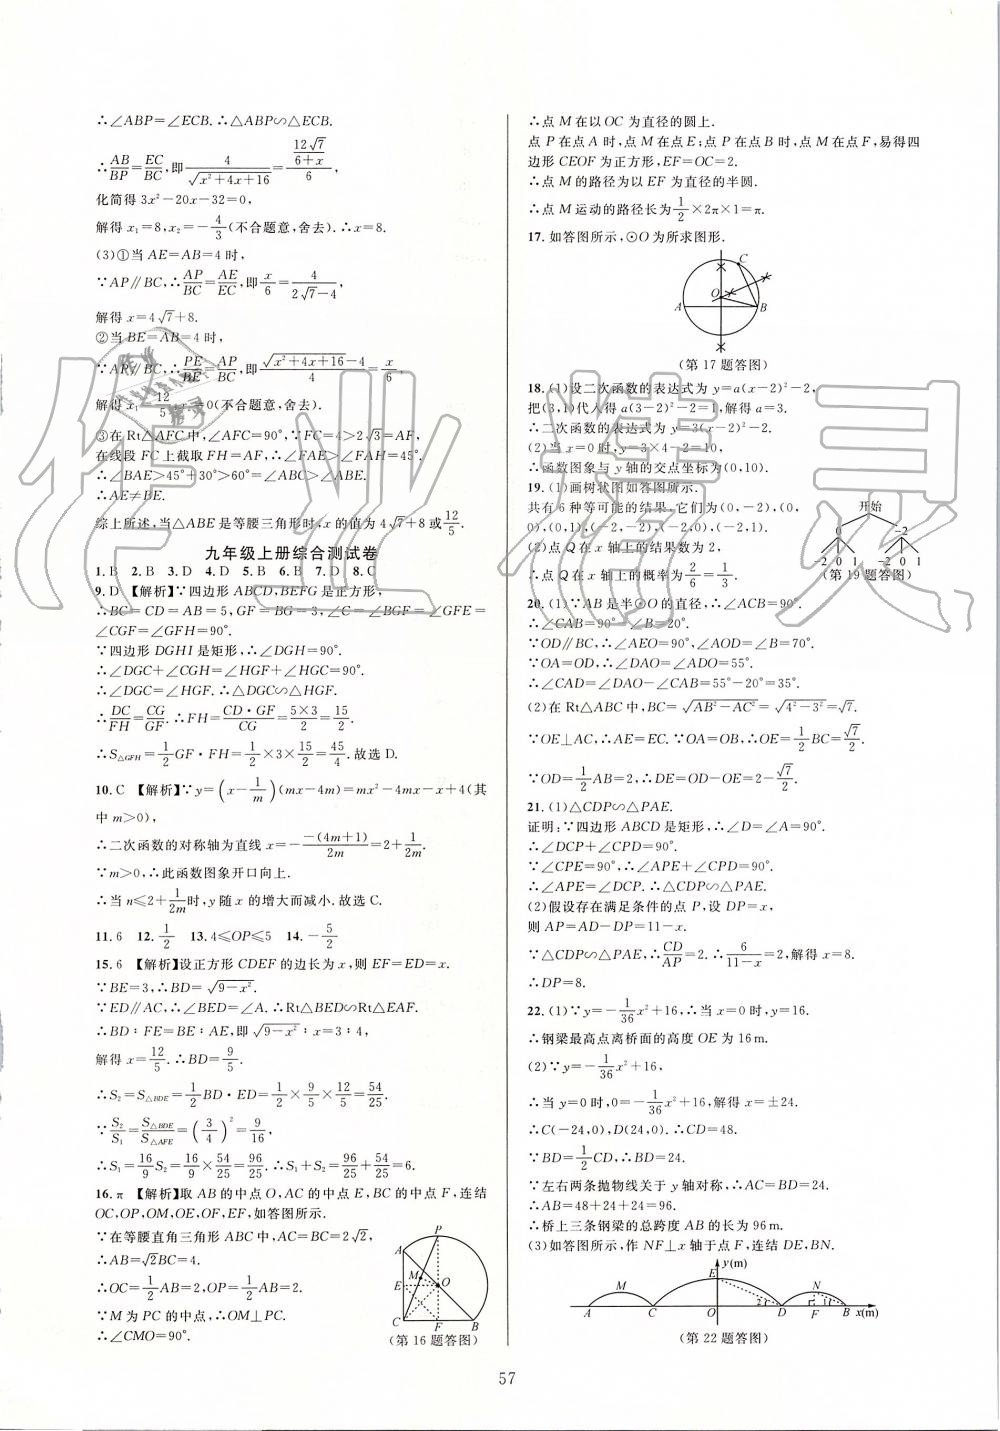 ∴∠ABP=∠ECB.∴△ABP∽△ECB.
∴AB/BP=EC/BC,即4/√(x²+4x+16)=(12√7/(6+x))/6,
化简得 3x²-20x-32=0,
解得 x₁=8,x₂=-4/3(不合题意,舍去).∴x=8.
(3)①当 AE=AB=4 时,
∵AP∥BC,∴AP/BC=AE/EC,即x/6=4/(2√7-4),
解得 x=4√7+8.
②当 BE=AB=4 时,
∵AP∥BC,∴PE/BE=AP/BC,即(√(x²+4x+16)-4)/4=x/6,
③在 Rt△AFC 中,∠AFC=90°,∵FC=4>2√3=AF,
在线段 FC 上截取 FH=AF,∴∠FAE>∠FAH=45°.
∴∠BAE>45°+30°>60°=∠ABC>∠ABE.
∴AE≠BE.
综上所述,当△ABE 是等腰三角形时,x 的值为 4√7+8或12/5.
九年级上册综合测试卷
1.B 2.B 3.D 4.D 5.B 6.B 7.D 8.C
9.D 【解析】∵四边形 ABCD,BEFG 是正方形,
∴BC=CD=AB=5,GF=BG=3,∠C=∠BGF=∠GFE=
∠CGF=∠GFH=90°.
∵四边形 DGHI 是矩形,∴∠DGH=90°.
∴∠DGC+∠CGH=∠FGH+∠HGC=90°.
∴∠DGC=∠HGF.∴△DGC∽△HGF.
∴DC/FH=CG/GF.∴FH=CD·GF/CG=5×3/2=15/2.
∴S△GFH=1/2GF·FH=1/2×3×15/2=45/4.故选 D.
10.C 【解析】∵y=(x-1/m)(mx-4m)=mx²-4mx-x+4(其
中 m>0),
∴二次函数的对称轴为直线 x=--(4m+1)/2m=2+1/2m.
∵m>0,∴此函数图象开口向上.
∴当 n≤2+1/2m时,y 随 x 的增大而减小.故选 C.
11.6 12.1/2 13.4≤OP≤5 14.-5/2
15.6 【解析】设正方形 CDEF 的边长为 x,则 EF=ED=x.
∵BE=3,∴BD=√(9-x²).
∵ED∥AC,∴∠BED=∠A.∴Rt△BED∽Rt△EAF.
∴BD∶FE=BE∶AE,即√(9-x²)∶x=3∶4,
解得 x=12/5.∴BD=9/5.
∴S₂=S△BDE=1/2BD·ED=1/2×9/5×12/5=54/25.
∵S₂/S₁=S△BDE/S△AFE=(3/4)²=9/16,
∴S₁=16/9S₂=16/9×54/25=96/25.∴S₁+S₂=96/25+54/25=6.
16.π 【解析】取 AB 的中点 O,AC 的中点 E,BC 的中点 F,连结
OC,OP,OM,OE,OF,EF,如答图所示.
∵在等腰直角三角形 ABC 中,AC=BC=2√2,
∴AB=√2BC=4.
∴OC=1/2AB=2,OP=1/2AB=2.
∵M 为 PC 的中点,∴OM⊥PC.
∴∠CMO=90°.
P
A
M
E O
C F B
(第 16 题答图)
∴点 M 在以 OC 为直径的圆上.
点 P 在点 A 时,点 M 在点 E;点 P 在点 B 时,点 M 在点 F,易得四
边形 CEOF 为正方形,EF=OC=2.
∴点 M 的路径为以 EF 为直径的半圆.
∴点 M 运动的路径长为1/2×2π×1=π.
17.如答图所示,⊙O 为所求图形.
C
O
A B
(第 17 题答图)
18.(1)设二次函数的表达式为 y=a(x-2)²-2,
把(3,1)代入得 a(3-2)²-2=1,解得 a=3.
∴二次函数的表达式为 y=3(x-2)²-2.
(2)当 x=0 时,y=3×4-2=10.
∴函数图象与 y 轴的交点坐标为(0,10).
19.(1)画树状图如答图所示.
共有 6 种等可能的结果:(0,-2),(0,
0),(0,1),(-2,-2),(-2,0),(-2,1).
(2)∵点 Q 在 x 轴上的结果数为 2,
∴点 Q 在 x 轴上的概率为2/6=1/3.
开始
0 -2
-2 0 1 -2 0 1
(第 19 题答图)
20.(1)∵AB 是半⊙O 的直径,∴∠ACB=90°.
∴∠CAB=90°-∠B=20°.
∵OD∥BC,∴∠AEO=90°,∠AOD=∠B=70°.
∵OA=OD,∴∠DAO=∠ADO=55°.
∴∠CAD=∠DAO-∠CAB=55°-20°=35°.
(2)在 Rt△ABC 中,BC=√(AB²-AC²)=√(4²-3²)=√7.
∵OE⊥AC,∴AE=EC.∵OA=OB,∴OE=1/2BC=√7/2.
∵OD=1/2AB=2,∴DE=OD-OE=2-√7/2.
21.(1)△CDP∽△PAE.
证明:∵四边形 ABCD 是矩形,∴∠D=∠A=90°.
∴∠DCP+∠CPD=90°.
∵∠CPE=90°,∴∠APE+∠CPD=90°.
∴∠APE=∠DCP.∴△CDP∽△PAE.
(2)假设存在满足条件的点 P,设 DP=x,
则 AP=AD-DP=11-x.
∵△CDP∽△PAE,∴CD/AP=2.∴6/(11-x)=2,解得 x=8.
∴DP=8.
22.(1)∵y=-1/36x²+16,∴当 x=0 时,y=16.
∴钢梁最高点离桥面的高度 OE 为 16 m.
(2)∵y=-1/36x²+16,
∴当 y=0 时,0=-1/36x²+16,解得 x=±24.
∴C(-24,0),D(24,0).∴CD=48.
∵BD=1/2CD,∴BD=24.
∵左右两条抛物线关于 y 轴对称,∴AC=BD=24.
∴AB=48+24+24=96.
∴桥上三条钢梁的总跨度 AB 的长为 96 m.
(3)如答图所示,作 NF⊥x 轴于点 F,连结 DE,BN.
y(m)
M E N
A C O D F B x(m)
(第 22 题答图)
57